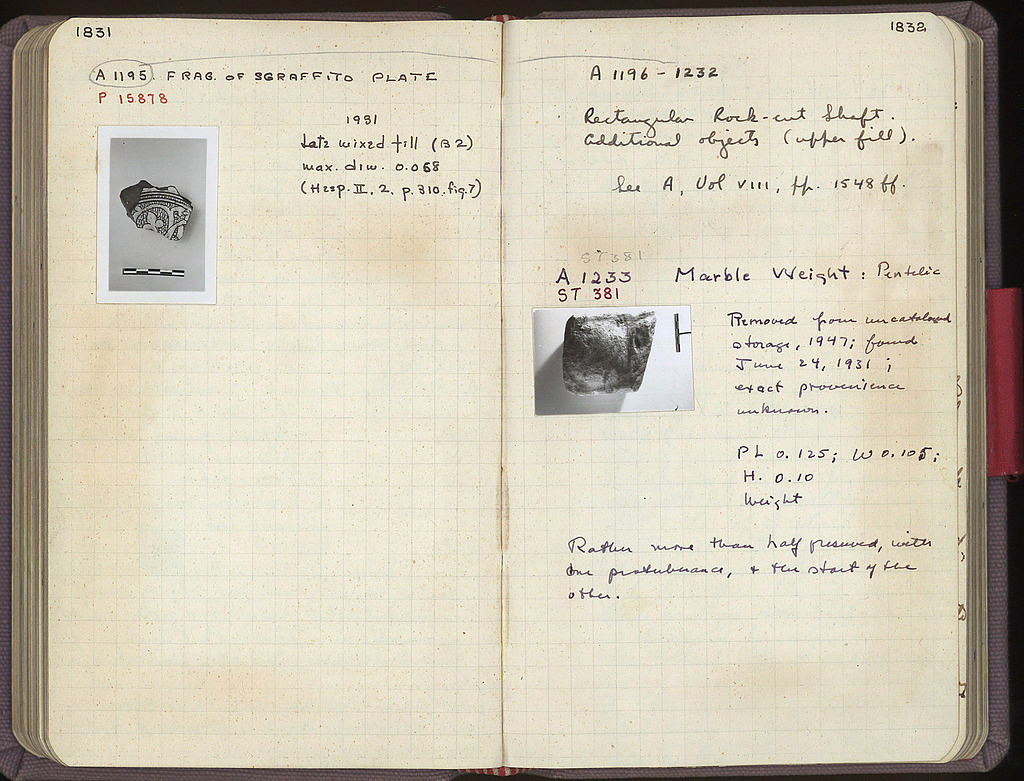 1831
A 1195. FRAG. OF SGRAFFITO PLATE
P 15878
1931
Late mixed fill (B2)
max. dim. 0.068
(Hesp. II, 2, p. 310. fig. 7)
1832
A 1196 - 1232
Rectangular Rock-cut Shaft.
Additional objects (upper fill).
See A, Vol VIII, pp. 1548 ff.
ST 381
A 1233 Marble Weight: Pentelic
ST 381
Removed from uncataloged
storage, 1947; found
June 24, 1931;
exact provenience
unknown.
P L 0.125; W 0.105;
H. 0.10
Weight
Rather more than half preserved, with
one protuberance, & the start of the
other.